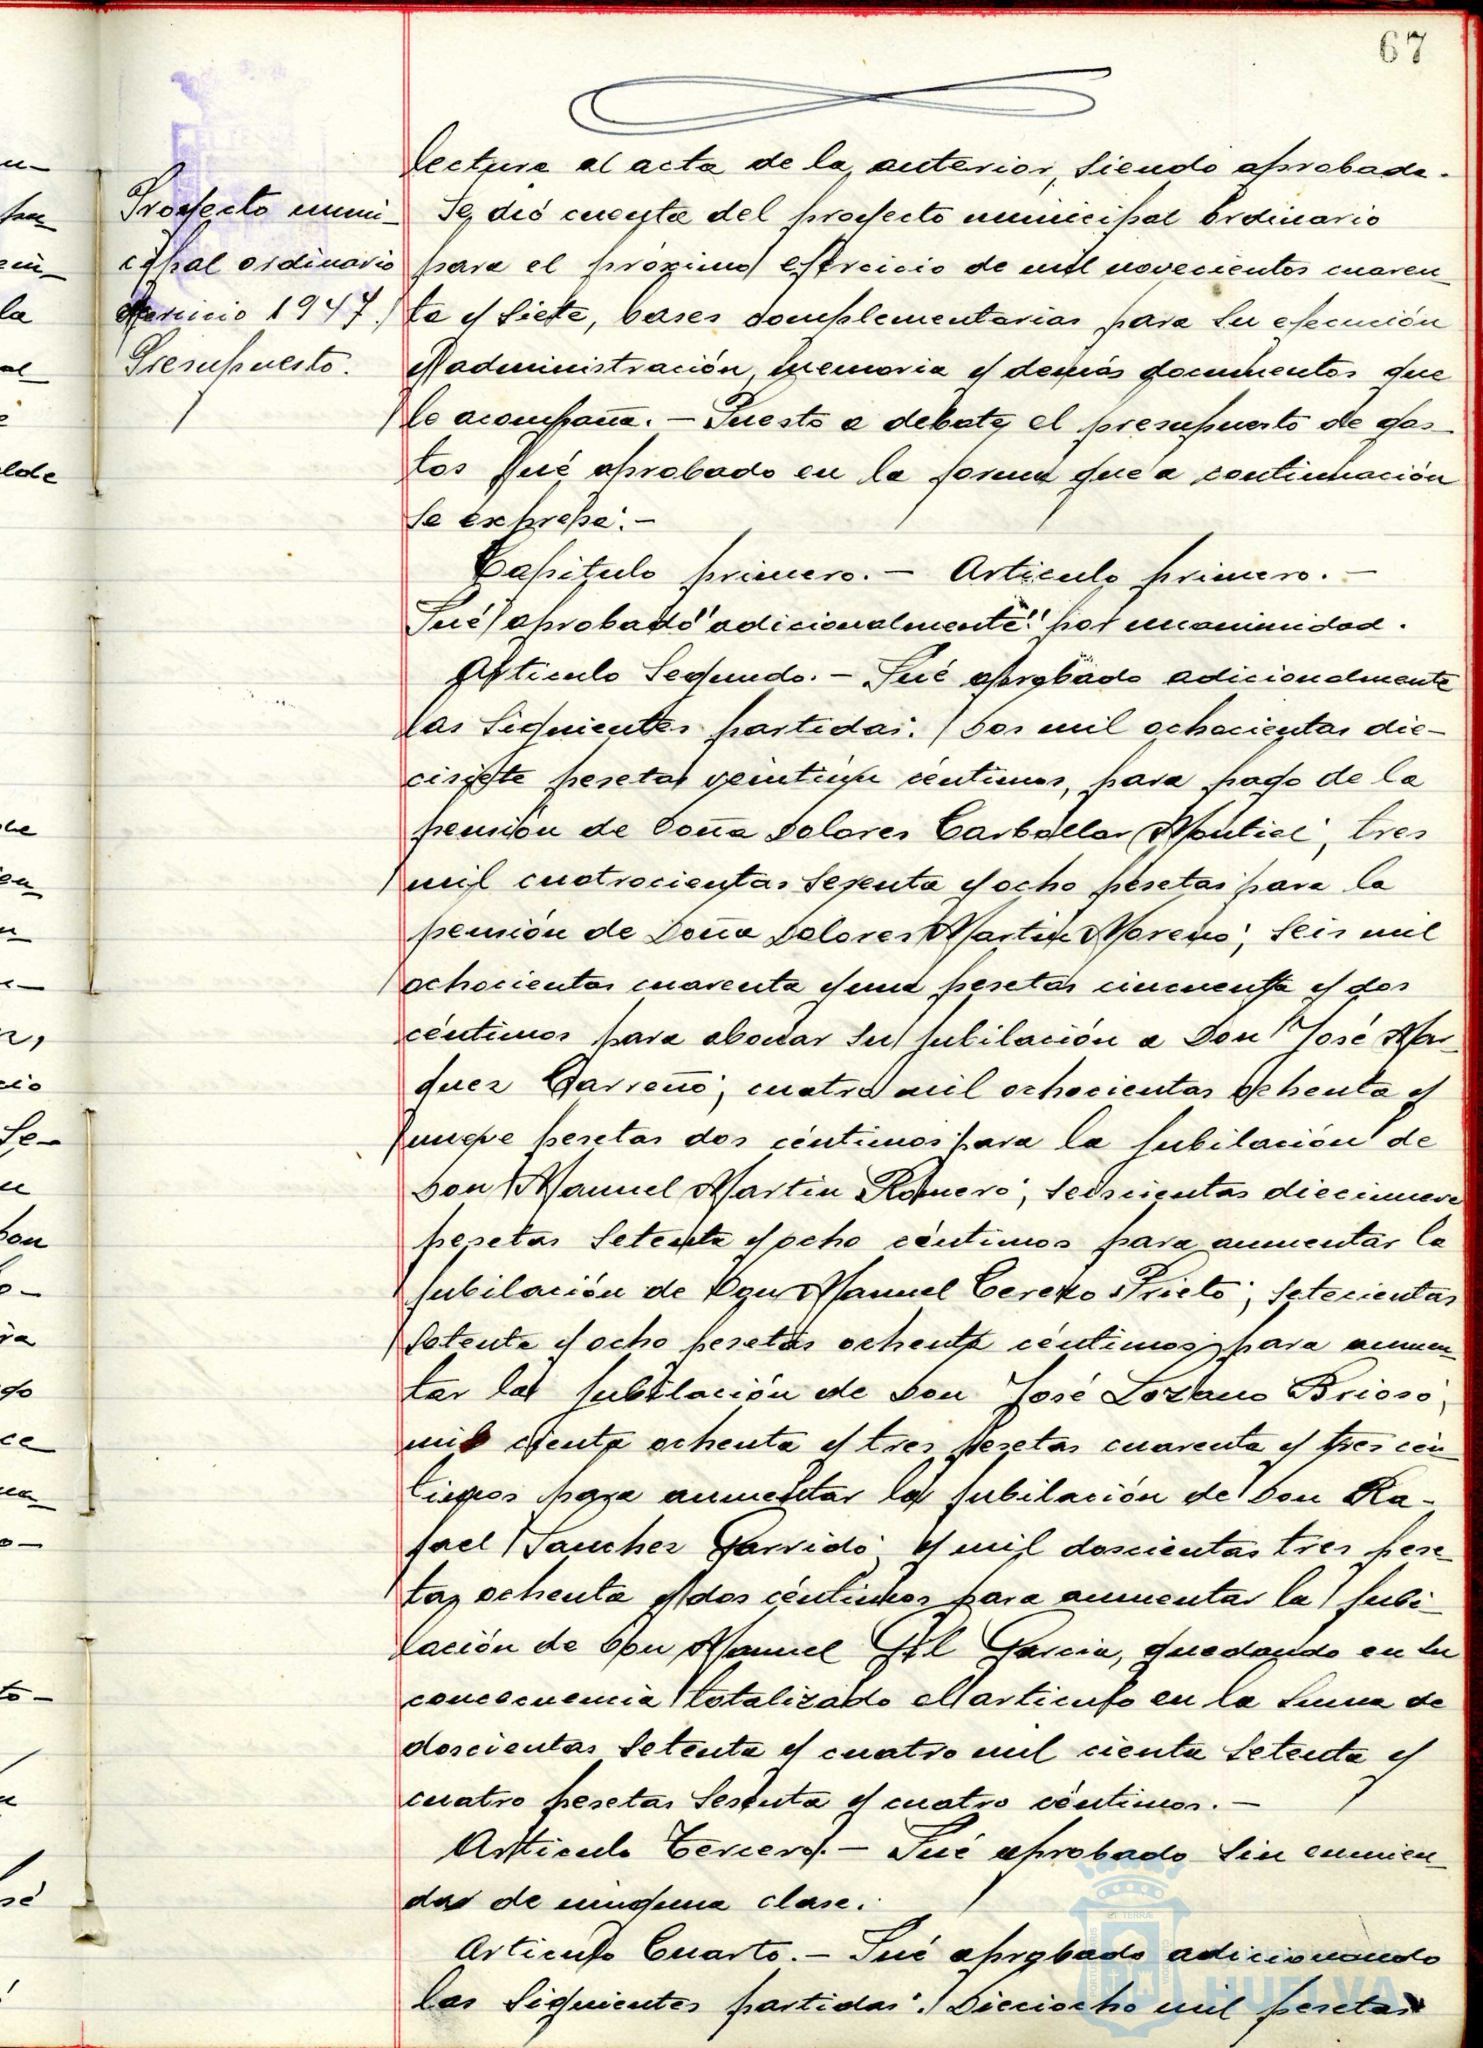 67
Proyecto muni-
cipal ordinario
ejercicio 1947.
Presupuesto.
lectura al acta de la anterior, siendo aprobada.
Se dió cuenta del proyecto municipal ordinario
para el próximo ejercicio de mil novecientos cuaren-
ta y siete, bases complementarias para su ejecución
y administración, memoria y demás documentos que
le acompaña. — Puesto a debate el presupuesto de gas-
tos fué aprobado en la forma que a continuación
se expresa: —
Capitulo primero. — Articulo primero. —
Fué aprobado "adicionalmente" por unanimidad.
Articulo Segundo. — Fué aprobado adicionalmente
las siguientes partidas: Dos mil ochocientas die-
cisiete pesetas veintiún céntimos, para pago de la
pensión de Doña Dolores Carballar Montiel; tres
mil cuatrocientas sesenta y ocho pesetas para la
pensión de Doña Dolores Martin Moreno; seis mil
ochocientas cuarenta y una pesetas cincuenta y dos
céntimos para abonar su jubilación a Don José Mar-
quez Carreño; cuatro mil ochocientas ochenta y
nueve pesetas dos céntimos para la jubilación de
Don Manuel Martin Romero; seiscientas diecinueve
pesetas setenta y ocho céntimos para aumentar la
jubilación de Don Manuel Cerezo Prieto; setecientas
setenta y ocho pesetas ochenta céntimos para aumen-
tar la jubilación de Don José Lozano Brioso;
mil ciento ochenta y tres pesetas cuarenta y tres cén-
timos para aumentar la jubilación de Don Ra-
fael Sanchez Garrido; y mil doscientas tres pese-
tas ochenta y dos céntimos para aumentar la jubi-
lación de Don Manuel Gil Garcia, quedando en su
concecuencia totalizado el articulo en la suma de
doscientas setenta y cuatro mil cienta setenta y
cuatro pesetas sesenta y cuatro céntimos. —
Articulo Tercero. — Fué aprobado sin enmien-
das de ninguna clase.
Articulo Cuarto. — Fué aprobado adicionando
las siguientes partidas: Dieciocho mil pesetas
HUELVA